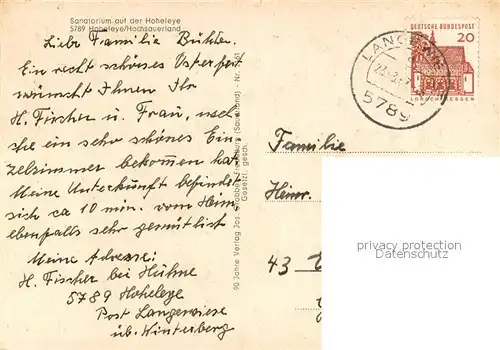 Sanatorium auf der Hoheleye
5789 Hoheleye/Hochsauerland
Liebe Familie
Ein recht schönes Osterfest
wünscht Ihnen Ihr
H. Fischer u. Frau,
die ein sehr schönes Ein-
zelzimmer bekommen hat.
Meine Unterkunft befindet
sich ca 10 min. vom Heim
ebenfalls sehr gemütlist
Meine Adresse:
H. Fischer bei Hühne
5789 Hoheleye
Post Langewiese
üb. Winterberg
90 Jahre Verlag Jos. Grobbel, Fredeburg (Sauerland) - Nr.
Gesetzl. gesch.
DEUTSCHE BUNDESPOST
20
LORSCH/HESSEN
5789
Familie
Heinr.
43
privacy protection
Datenschutz